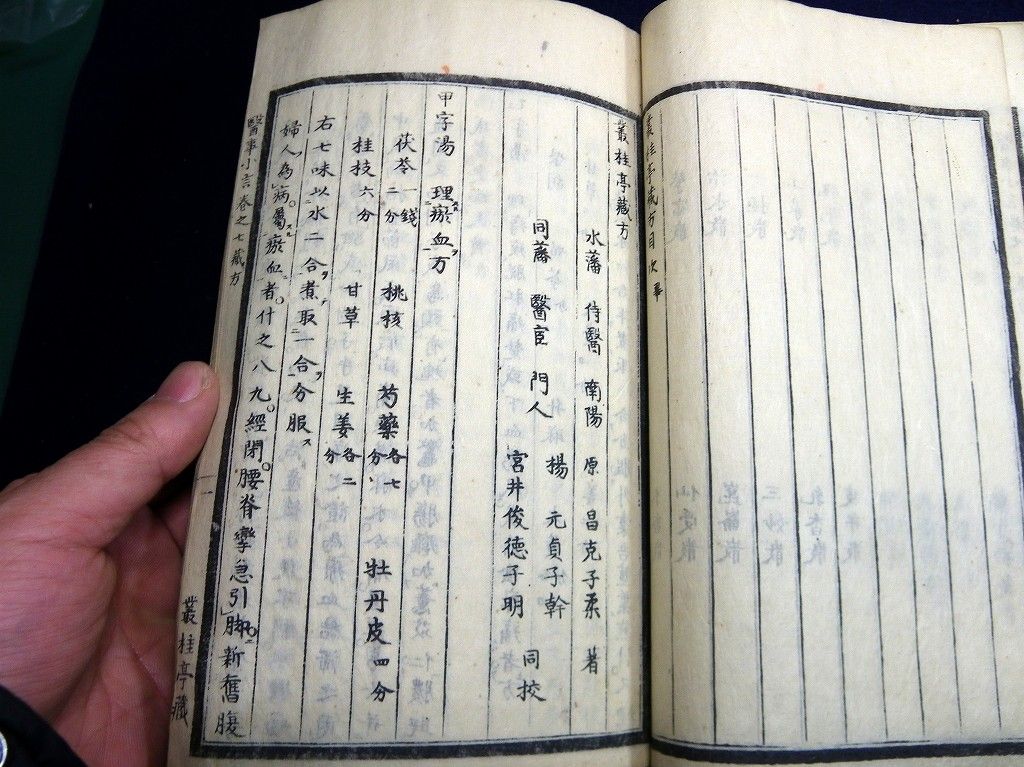 叢桂亭藏方目次畢
叢桂亭藏方
水藩 侍醫 南陽 原昌克子柔 著
同藩 醫官 門人 楊 元貞子幹
宮井俊德子明 同挍
甲字湯 理瘀血方
茯苓一錢二分 桃核 芍藥各七分 牡丹皮四分
桂枝六分 甘草 生姜各二分
右七味以水二合煮取一合分服
婦人為病屬瘀血者什之八九經閉腰脊攣急引脚新舊腹
醫事小言卷之七藏方
叢桂亭藏